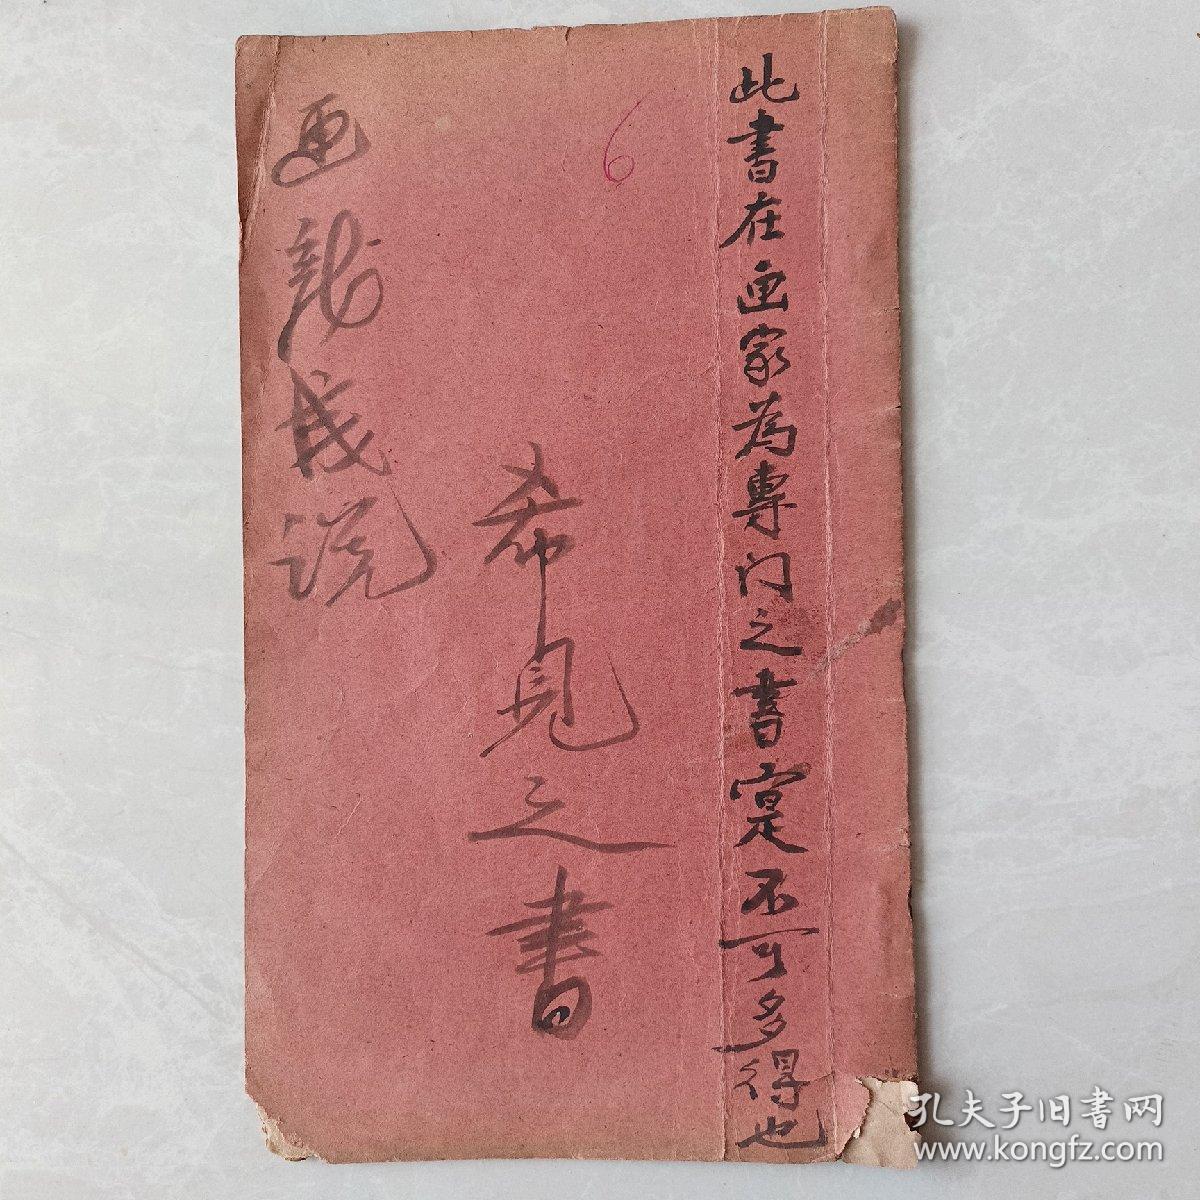 此書在画家為專门之書寔不可多得也
希見之書
画龍浅说
6
孔夫子旧書网
www.kongfz.com